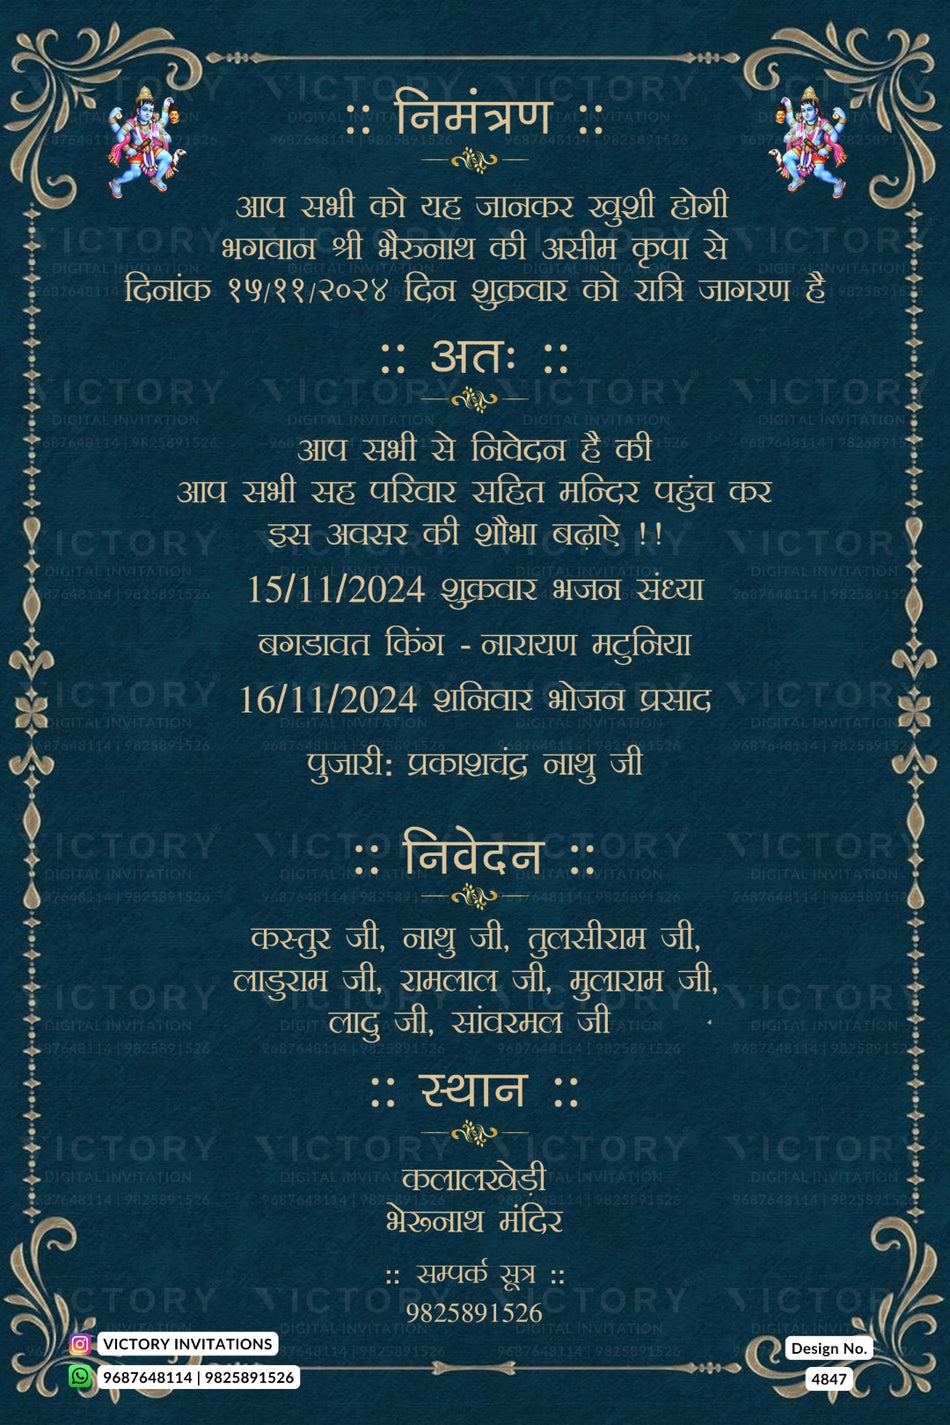 :: निमंत्रण ::
आप सभी को यह जानकर खुशी होगी
भगवान श्री भैरुनाथ की असीम कृपा से
दिनांक १५/११/२०२४ दिन शुक्रवार को रात्रि जागरण है
:: अतः ::
आप सभी से निवेदन है की
आप सभी सह परिवार सहित मन्दिर पहुंच कर
इस अवसर की शौभा बढ़ाऐ !!
15/11/2024 शुक्रवार भजन संध्या
बगडावत किंग - नारायण मटुनिया
16/11/2024 शनिवार भोजन प्रसाद
पुजारी: प्रकाशचंद्र नाथु जी
:: निवेदन ::
कस्तुर जी, नाथु जी, तुलसीराम जी,
लाडुराम जी, रामलाल जी, मुलाराम जी,
लादु जी, सांवरमल जी
:: स्थान ::
कलालखेड़ी
भेरूनाथ मंदिर
:: सम्पर्क सूत्र ::
9825891526
VICTORY INVITATIONS
9687648114 | 9825891526
Design No.
4847
VICTORY
DIGITAL INVITATION
9687648114 | 9825891526